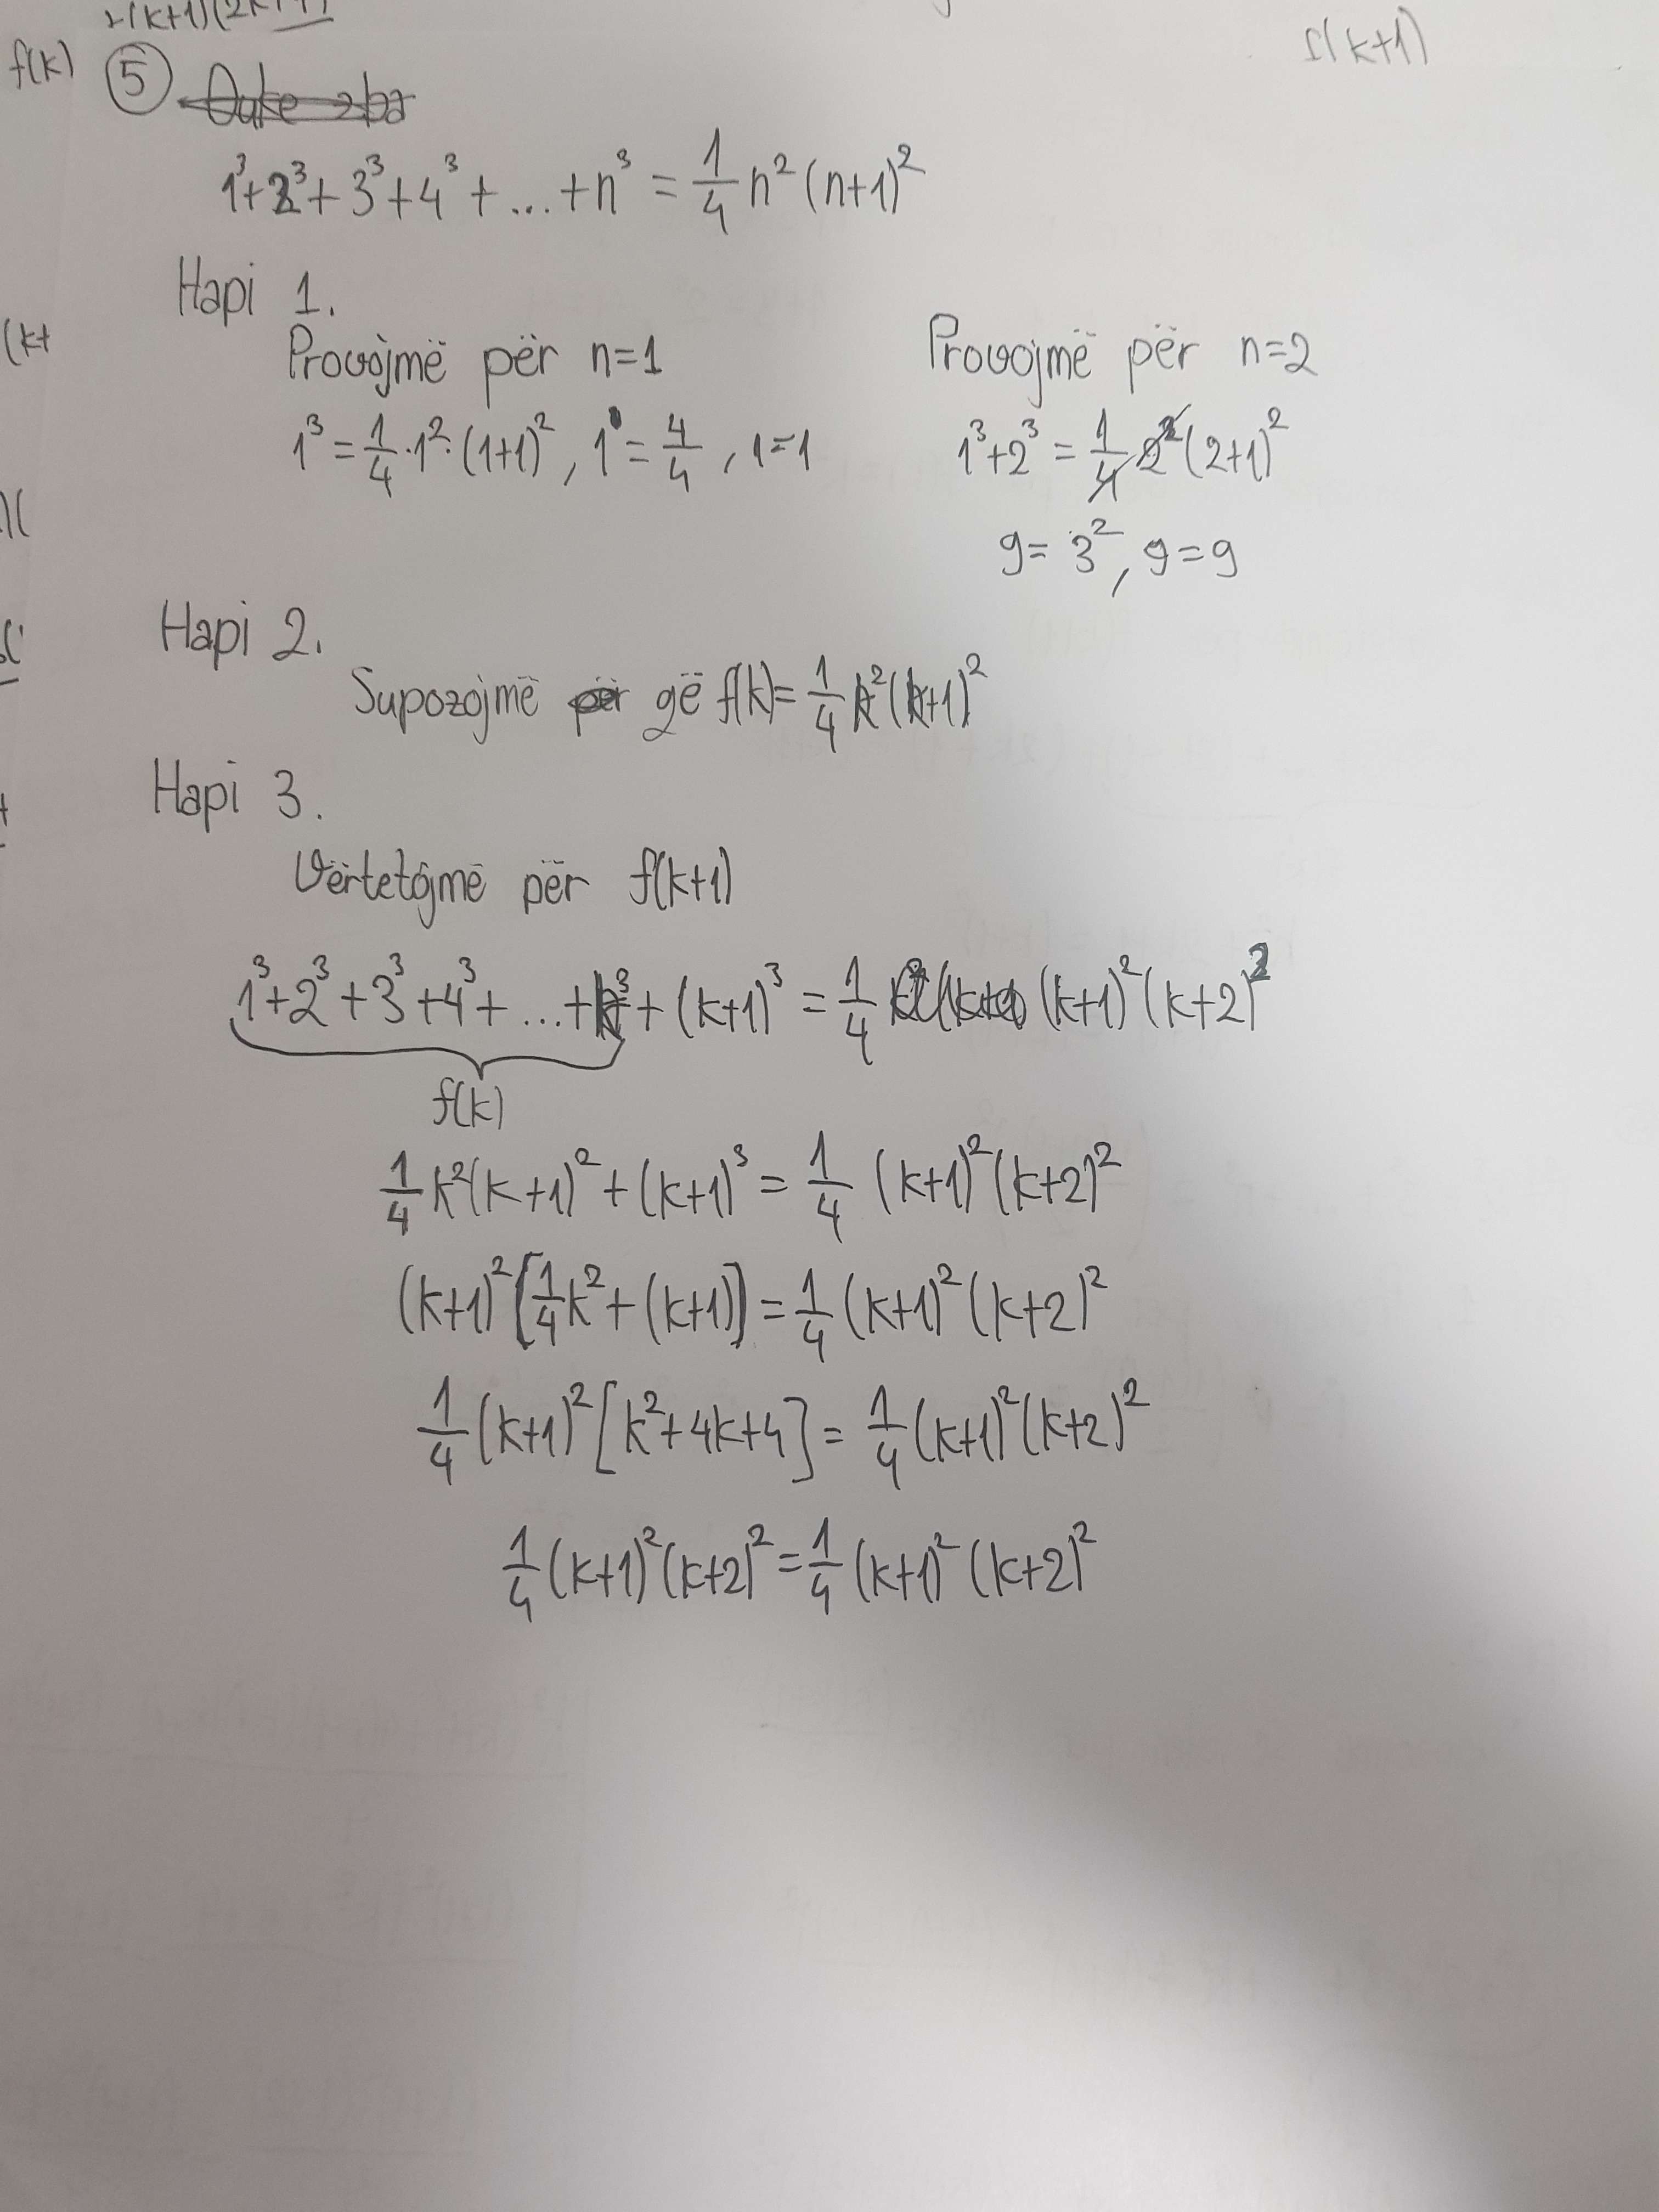 f(k)
5
1³+2³+3³+4³+...+n³ = 1/4 n² (n+1)²
Hapi 1.
Provojmë për n=1
1³ = 1/4 · 1² · (1+1)², 1 = 4/4, 1=1
Provojmë për n=2
1³+2³ = 1/4 2² (2+1)²
9 = 3², 9=9
Hapi 2.
Supozojmë që f(k) = 1/4 k² (k+1)²
Hapi 3.
Vërtetojmë për f(k+1)
1³+2³+3³+4³+...+k³+(k+1)³ = 1/4 (k+1)² (k+2)²
f(k)
1/4 k² (k+1)² + (k+1)³ = 1/4 (k+1)² (k+2)²
(k+1)² [1/4 k² + (k+1)] = 1/4 (k+1)² (k+2)²
1/4 (k+1)² [k²+4k+4] = 1/4 (k+1)² (k+2)²
1/4 (k+1)² (k+2)² = 1/4 (k+1)² (k+2)²